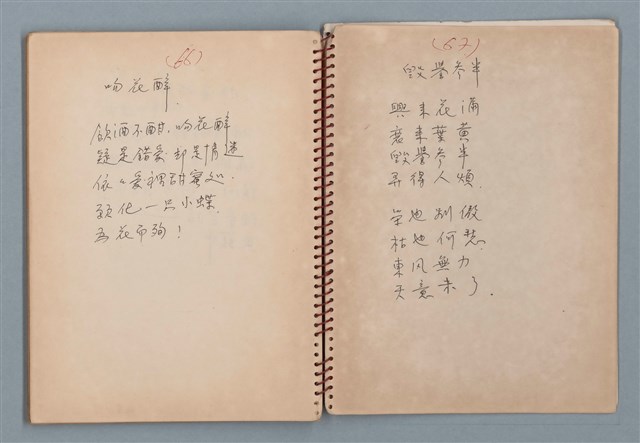 (66)
吻花醉
飲酒不酣，吻花醉
疑是錯愛却是情迷
依々愛裯甜蜜処．
願化一只小蝶．
為花而殉！
(67)
毀譽參半
興來花滿
衰來葉黃
毀譽參半
弄得人煩．
榮也別傲
枯也何愁
東風無力
天意未了．